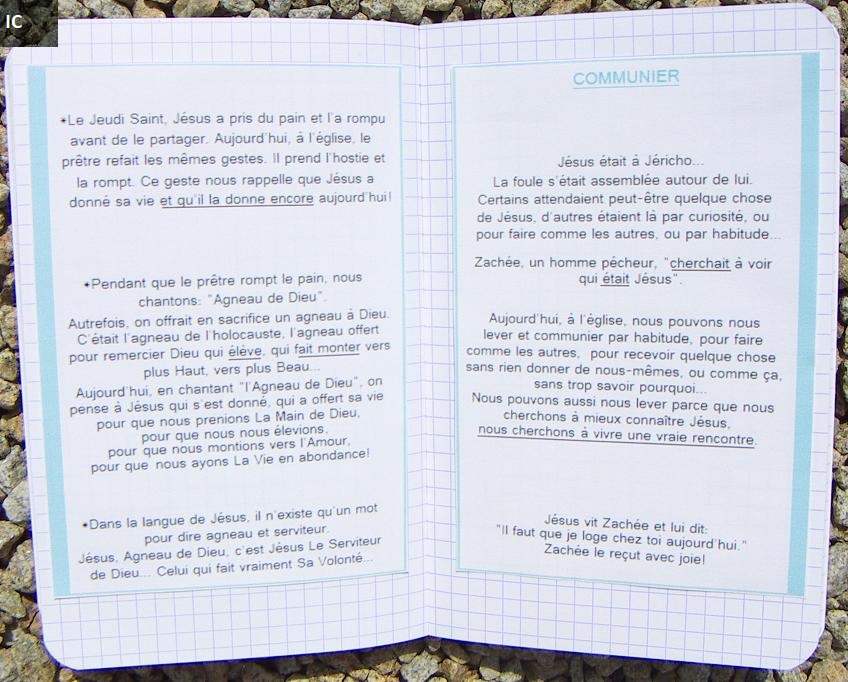 IC
*Le Jeudi Saint, Jésus a pris du pain et l'a rompu
avant de le partager. Aujourd'hui, à l'église, le
prêtre refait les mêmes gestes. Il prend l'hostie et
la rompt. Ce geste nous rappelle que Jésus a
donné sa vie et qu'il la donne encore aujourd'hui!
*Pendant que le prêtre rompt le pain, nous
chantons: "Agneau de Dieu".
Autrefois, on offrait en sacrifice un agneau à Dieu.
C'était l'agneau de l'holocauste, l'agneau offert
pour remercier Dieu qui élève, qui fait monter vers
plus Haut, vers plus Beau...
Aujourd'hui, en chantant "l'Agneau de Dieu", on
pense à Jésus qui s'est donné, qui a offert sa vie
pour que nous prenions La Main de Dieu,
pour que nous nous élevions,
pour que nous montions vers l'Amour,
pour que nous ayons La Vie en abondance!
*Dans la langue de Jésus, il n'existe qu'un mot
pour dire agneau et serviteur.
Jésus, Agneau de Dieu, c'est Jésus Le Serviteur
de Dieu... Celui qui fait vraiment Sa Volonté...
COMMUNIER
Jésus était à Jéricho...
La foule s'était assemblée autour de lui.
Certains attendaient peut-être quelque chose
de Jésus, d'autres étaient là par curiosité, ou
pour faire comme les autres, ou par habitude...
Zachée, un homme pécheur, "cherchait à voir
qui était Jésus".
Aujourd'hui, à l'église, nous pouvons nous
lever et communier par habitude, pour faire
comme les autres, pour recevoir quelque chose
sans rien donner de nous-mêmes, ou comme ça,
sans trop savoir pourquoi...
Nous pouvons aussi nous lever parce que nous
cherchons à mieux connaître Jésus,
nous cherchons à vivre une vraie rencontre.
Jésus vit Zachée et lui dit:
"Il faut que je loge chez toi aujourd'hui."
Zachée le reçut avec joie!